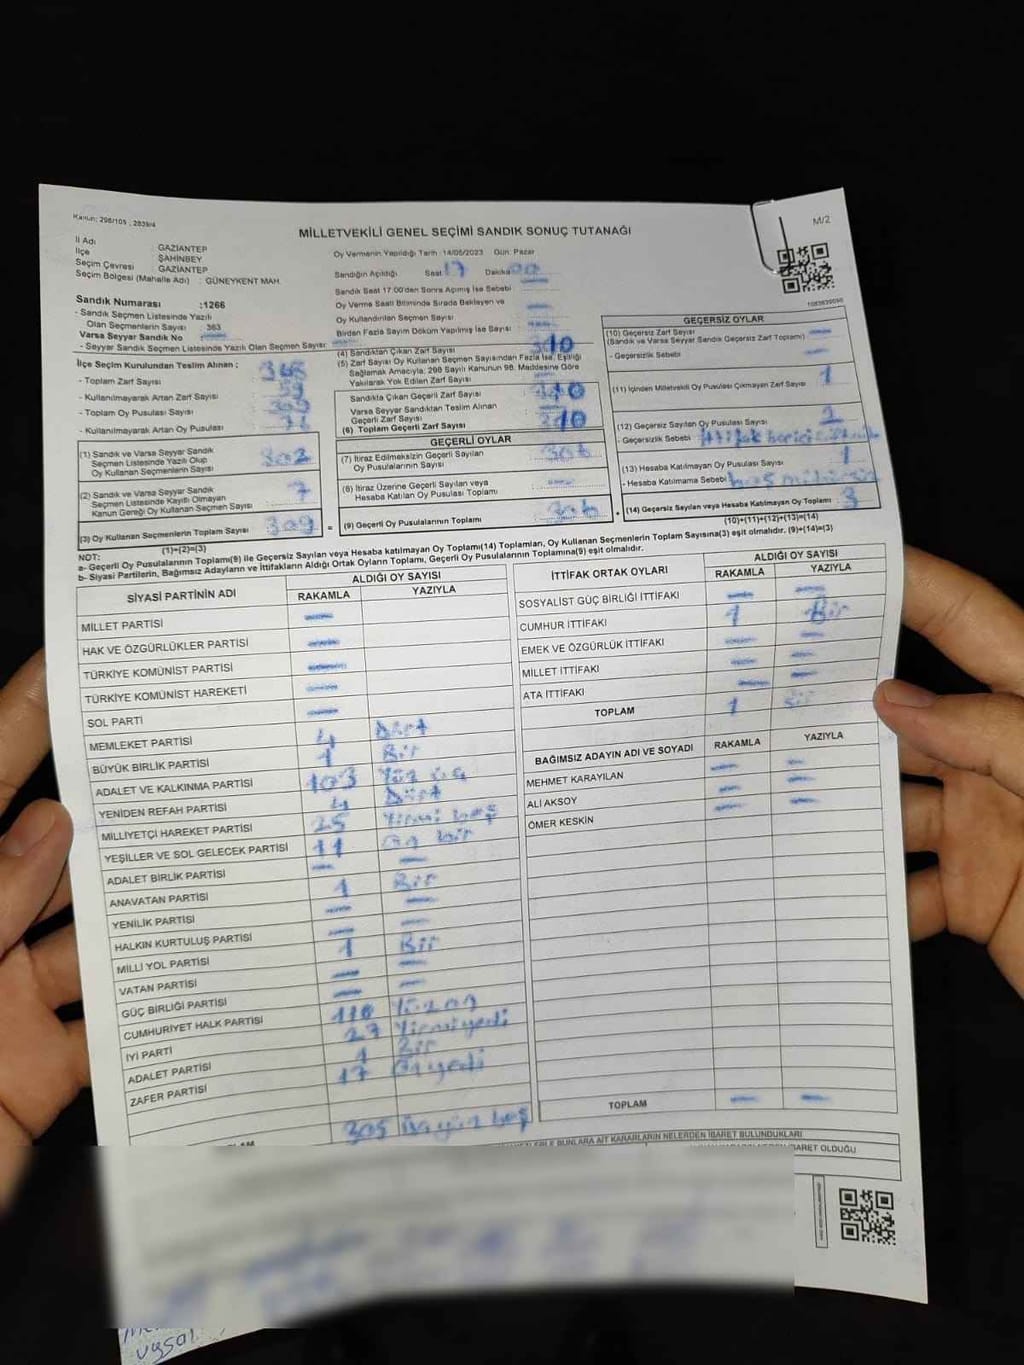 Kanun: 298/105 , 2839/4
M/2
MİLLETVEKİLİ GENEL SEÇİMİ SANDIK SONUÇ TUTANAĞI
İl Adı GAZİANTEP
İlçe ŞAHİNBEY
Seçim Çevresi GAZİANTEP
Seçim Bölgesi (Mahalle Adı) : GÜNEYKENT MAH.
Sandık Numarası :1266
- Sandık Seçmen Listesinde Yazılı
Olan Seçmenlerin Sayısı : 363
Varsa Seyyar Sandık No
- Seyyar Sandık Seçmen Listesinde Yazılı Olan Seçmen Sayısı:
Oy Vermenin Yapıldığı Tarih :14/05/2023 Gün: Pazar
Sandığın Açıldığı Saat 17 Dakika 00
Sandık Saat 17.00'den Sonra Açılmış İse Sebebi
Oy Verme Saati Bitiminde Sırada Bekleyen ve
Oy Kullandırılan Seçmen Sayısı
Birden Fazla Sayım Döküm Yapılmış İse Sayısı
İlçe Seçim Kurulundan Teslim Alınan ;
- Toplam Zarf Sayısı
- Kullanılmayarak Artan Zarf Sayısı
- Toplam Oy Pusulası Sayısı
- Kullanılmayarak Artan Oy Pusulası
(1) Sandık ve Varsa Seyyar Sandık
Seçmen Listesinde Yazılı Olup
Oy Kullanan Seçmenlerin Sayısı 302
(2) Sandık ve Varsa Seyyar Sandık
Seçmen Listesinde Kayıtlı Olmayan
Kanun Gereği Oy Kullanan Seçmen Sayısı 7
(3) Oy Kullanan Seçmenlerin Toplam Sayısı 309 =
(1)+(2)=(3)
(4) Sandıktan Çıkan Zarf Sayısı 310
(5) Zarf Sayısı Oy Kullanan Seçmen Sayısından Fazla İse, Eşitliği
Sağlamak Amacıyla, 298 Sayılı Kanunun 98. Maddesine Göre
Yakılarak Yok Edilen Zarf Sayısı
Sandıkta Çıkan Geçerli Zarf Sayısı 310
Varsa Seyyar Sandıktan Teslim Alınan
Geçerli Zarf Sayısı
(6) Toplam Geçerli Zarf Sayısı 310
GEÇERLİ OYLAR
(7) İtiraz Edilmeksizin Geçerli Sayılan
Oy Pusulalarının Sayısı 306
(8) İtiraz Üzerine Geçerli Sayılan veya
Hesaba Katılan Oy Pusulası Toplamı
(9) Geçerli Oy Pusulalarının Toplamı 306 +
GEÇERSİZ OYLAR
(10) Geçersiz Zarf Sayısı
(Sandık ve Varsa Seyyar Sandık Geçersiz Zarf Toplamı)
- Geçersizlik Sebebi
(11) İçinden Milletvekili Oy Pusulası Çıkmayan Zarf Sayısı 1
(12) Geçersiz Sayılan Oy Pusulası Sayısı
- Geçersizlik Sebebi
(13) Hesaba Katılmayan Oy Pusulası Sayısı 1
- Hesaba Katılmama Sebebi
(14) Geçersiz Sayılan veya Hesaba Katılmayan Oy Toplamı 3
(10)+(11)+(12)+(13)=(14)
NOT:
a- Geçerli Oy Pusulalarının Toplamı(9) ile Geçersiz Sayılan veya Hesaba katılmayan Oy Toplamı(14) Toplamları, Oy Kullanan Seçmenlerin Toplam Sayısına(3) eşit olmalıdır. (9)+(14)=(3)
b- Siyasi Partilerin, Bağımsız Adayların ve İttifakların Aldığı Ortak Oyların Toplamı, Geçerli Oy Pusulalarının Toplamına(9) eşit olmalıdır.
SİYASİ PARTİNİN ADI ALDIĞI OY SAYISI
RAKAMLA YAZIYLA
MİLLET PARTİSİ
HAK VE ÖZGÜRLÜKLER PARTİSİ
TÜRKİYE KOMÜNİST PARTİSİ
TÜRKİYE KOMÜNİST HAREKETİ
SOL PARTİ
MEMLEKET PARTİSİ 4 Dört
BÜYÜK BİRLİK PARTİSİ 1 Bir
ADALET VE KALKINMA PARTİSİ 103 Yüz üç
YENİDEN REFAH PARTİSİ 4 Dört
MİLLİYETÇİ HAREKET PARTİSİ 25 Yirmi beş
YEŞİLLER VE SOL GELECEK PARTİSİ 11 On bir
ADALET BİRLİK PARTİSİ
ANAVATAN PARTİSİ 1 Bir
YENİLİK PARTİSİ
HALKIN KURTULUŞ PARTİSİ
MİLLİ YOL PARTİSİ 1 Bir
VATAN PARTİSİ
GÜÇ BİRLİĞİ PARTİSİ
CUMHURİYET HALK PARTİSİ 110 Yüz on
İYİ PARTİ 27 Yirmiyedi
ADALET PARTİSİ 1 Bir
ZAFER PARTİSİ 17 Onyedi
305 Üçyüz beş
İTTİFAK ORTAK OYLARI ALDIĞI OY SAYISI
RAKAMLA YAZIYLA
SOSYALİST GÜÇ BİRLİĞİ İTTİFAKI
CUMHUR İTTİFAKI 1 Bir
EMEK VE ÖZGÜRLÜK İTTİFAKI
MİLLET İTTİFAKI
ATA İTTİFAKI
TOPLAM 1 Bir
BAĞIMSIZ ADAYIN ADI VE SOYADI RAKAMLA YAZIYLA
MEHMET KARAYILAN
ALİ AKSOY
ÖMER KESKİN
TOPLAM
BUNLARA AİT KARARLARIN NELERDEN İBARET BULUNDUKLARI
İBARET OLDUĞU
uysal